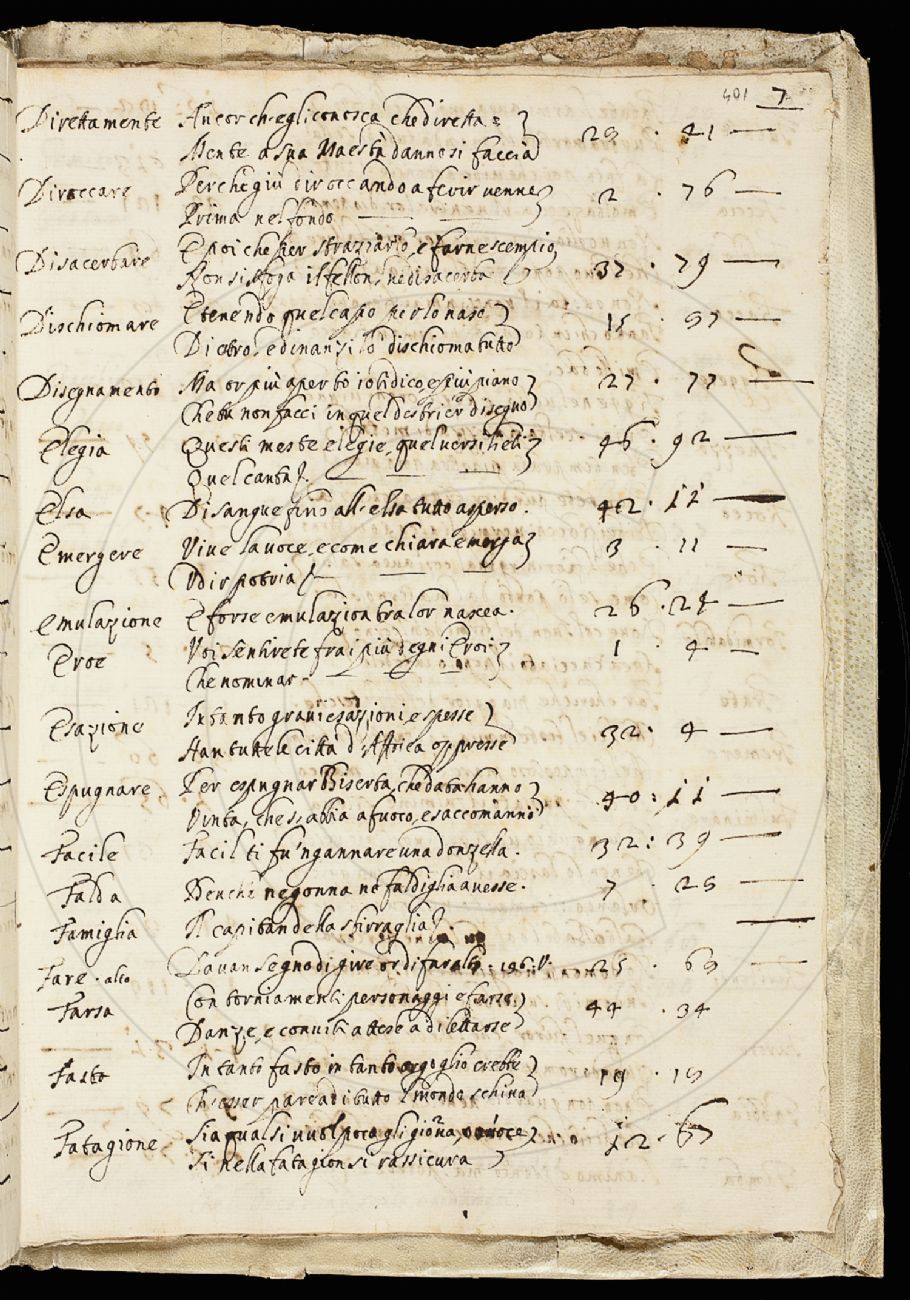 401 7
Direttamente Ancor ch'egli conosca, che diretta =
Mente a sua Maestà danno si faccia 23 · 41
Diroccare Perche giù diroccando a ferir venne
Prima nel fondo 2 · 76
Disacerbare E poi che per straziarlo, e farne scempio,
Non si sfoga il fellon, ne disacerba 37 · 79
Dischiomare E tenendo quel capo per lo naso
Dietro, e dinanzi lo dischioma tutto 15 · 87
Disegnamento Ma or più aperto io ti dico, e più piano 27 · 77
Che tu non facci in quel destrier disegno
Elegia Questi meste elegie, quel versi lieti 46 · 92
Quel canta
Elsa Di sangue fino all'elsa tutto asperso. 42 · 11
Emergere Vive la voce, e come chiara emerga 3 · 11
Udir potria
Emulazione E forse emulazion tra lor nascea. 26 · 24
Eroe Voi sentirete fra i più degni Eroi 1 · 4
Che nominar
Esazione In tanto gravi esazioni, e spesse
Han tutte le città d'Affrica oppresse 32 · 4
Espugnare Per espugnar Biserta, che data hanno
Vinta, che s'abbia a fuoco, e saccomanno 40 : 11
Facile Facil ti fu 'ngannare una donzella. 32 : 39
Falda Benche ne gonna ne faldiglia avesse. 7 · 28
Famiglia Il capitan della sbirraglia
Fare · alto Davan segno di gire or di far alto 25 · 69
Farsa Con torniamenti personaggi e farse, 44 · 34
Danze, e conviti attese a dilettarse
Fasto In tanto fasto in tanto orgoglio crebbe
Ch'esser parea di tutto 'l mondo schiva 19 · 19
Fatagione Sia qual si vuol poco gli giova, o nuoce 12 · 67
Si nella fatagion si rassicura